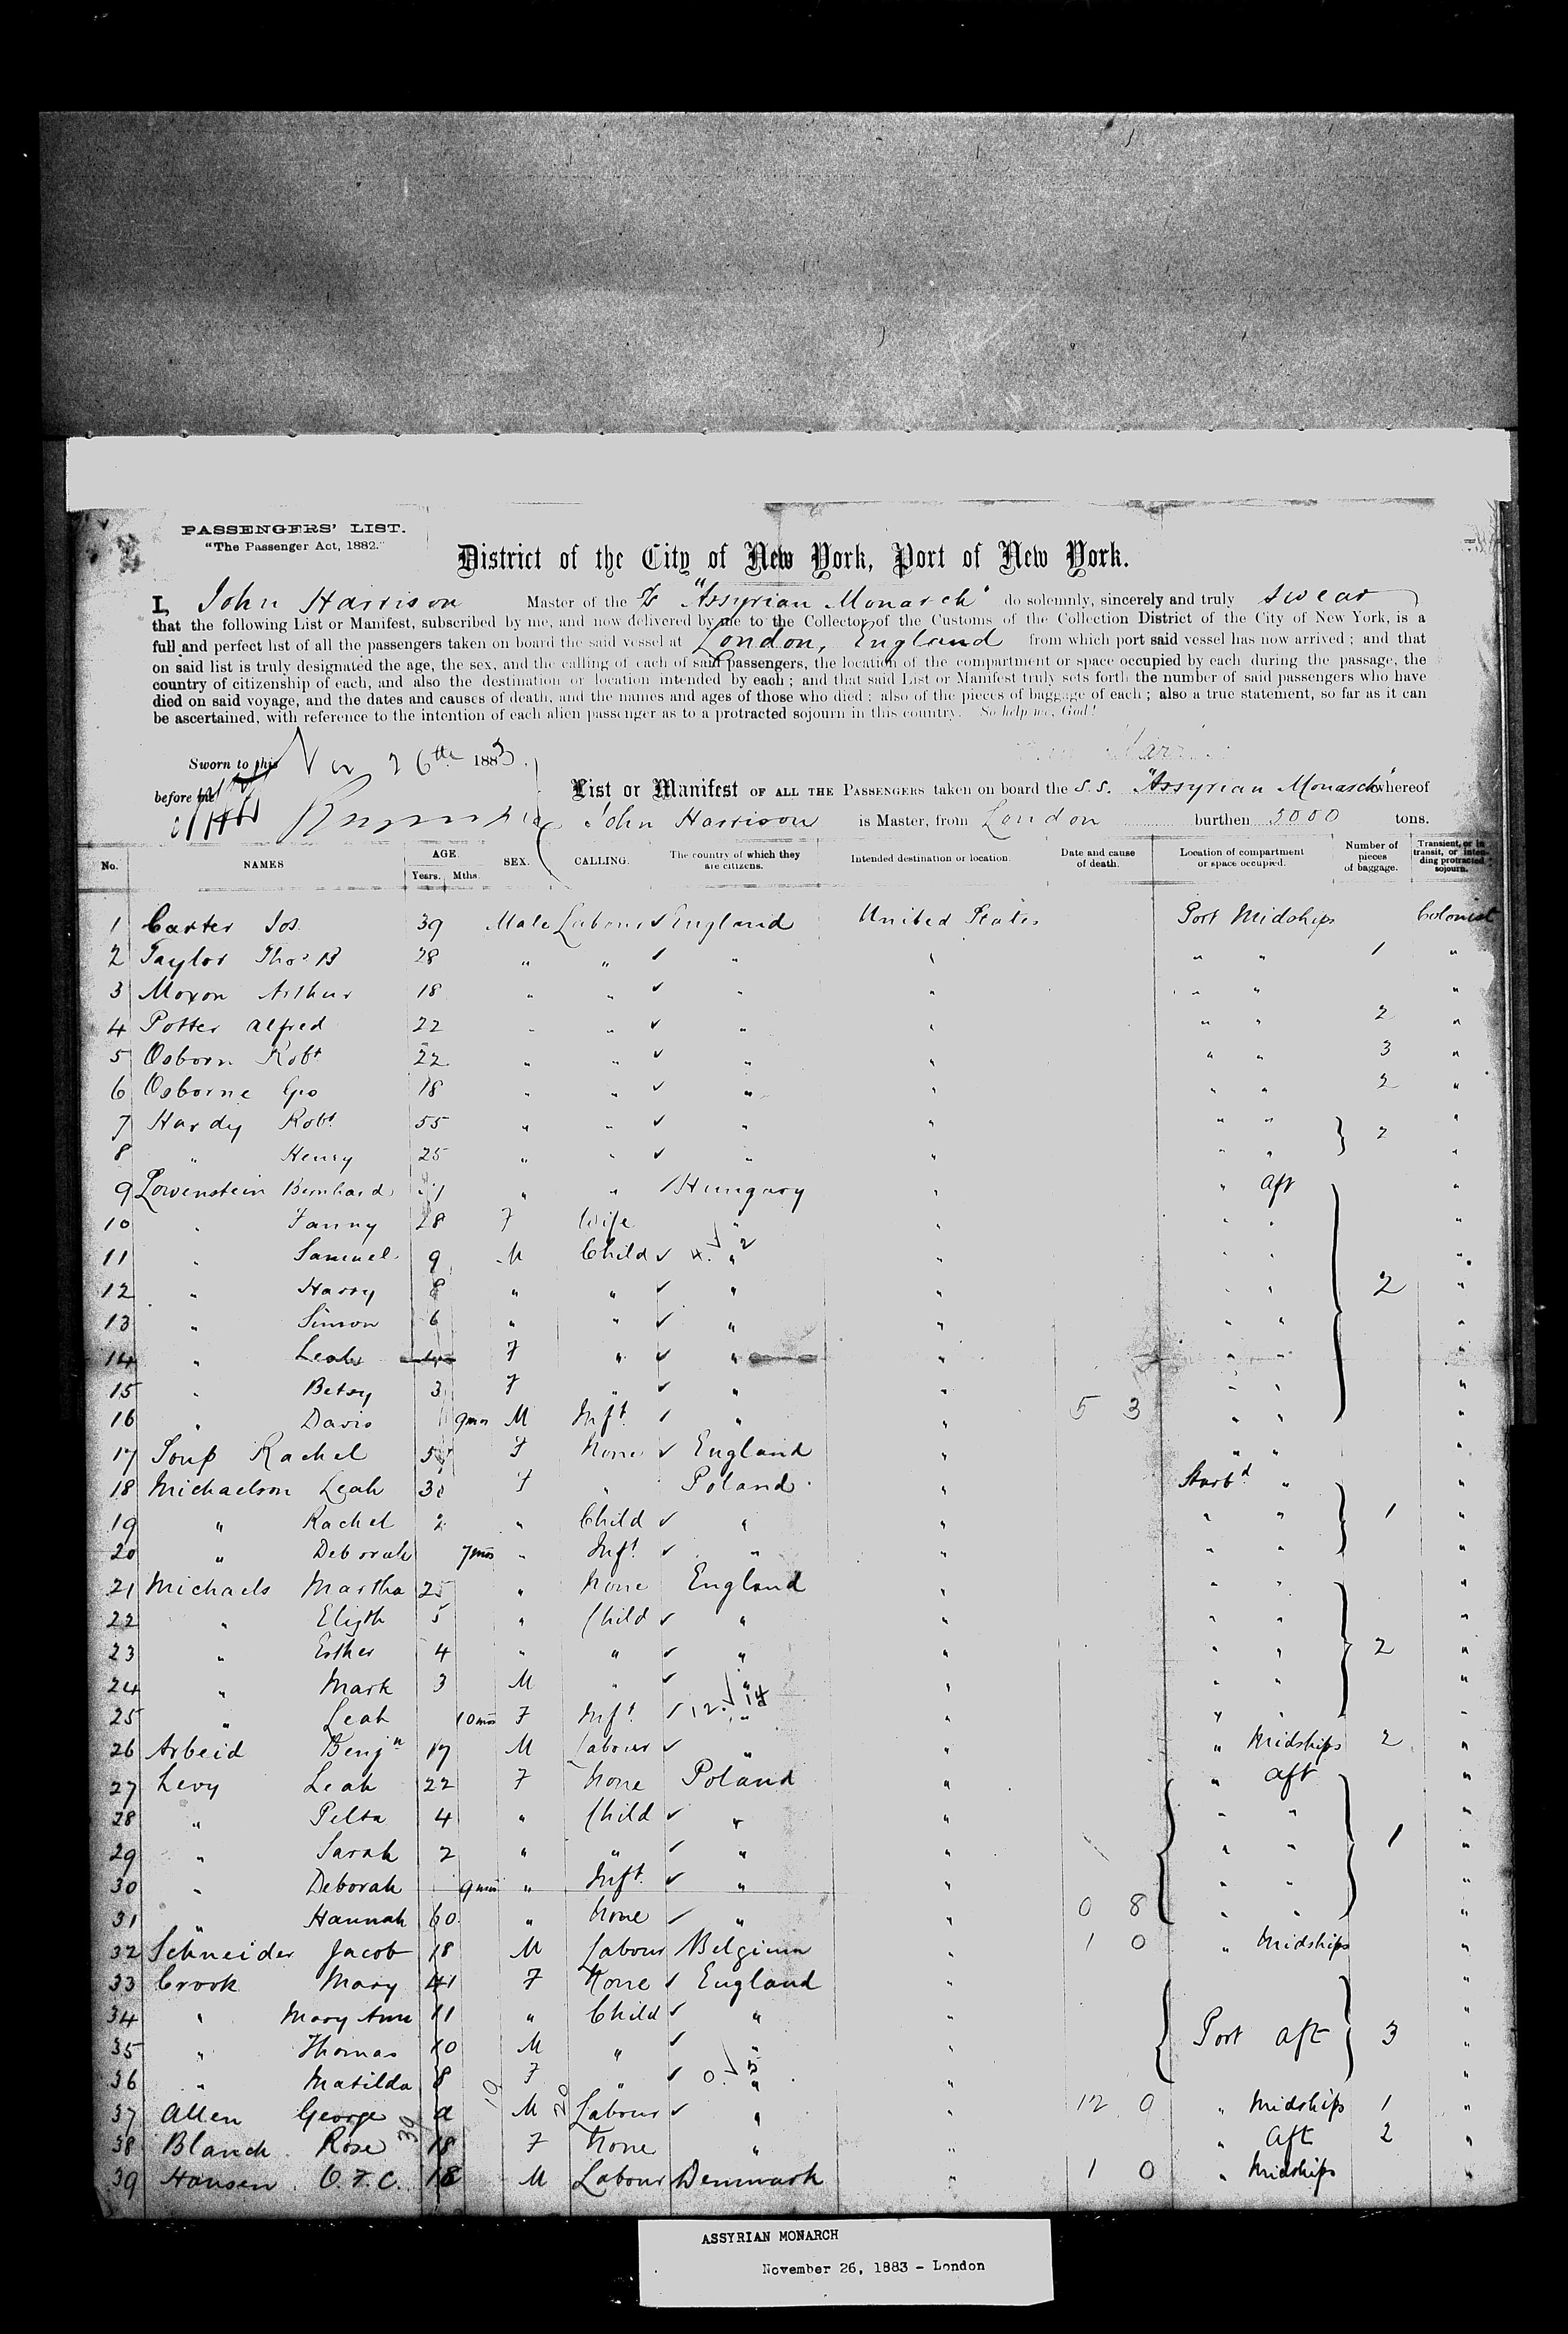 PASSENGERS' LIST.
"The Passenger Act, 1882."
District of the City of New York, Port of New York.
I, John Harrison Master of the S/S "Assyrian Monarch" do solemnly, sincerely and truly swear
that the following List or Manifest, subscribed by me, and now delivered by me to the Collector of the Customs of the Collection District of the City of New York, is a
full and perfect list of all the passengers taken on board the said vessel at London, England from which port said vessel has now arrived; and that
on said list is truly designated the age, the sex, and the calling of each of said passengers, the location of the compartment or space occupied by each during the passage, the
country of citizenship of each, and also the destination or location intended by each; and that said List or Manifest truly sets forth the number of said passengers who have
died on said voyage, and the dates and causes of death, and the names and ages of those who died; also of the pieces of baggage of each; also a true statement, so far as it can
be ascertained, with reference to the intention of each alien passenger as to a protracted sojourn in this country. So help me, God!
Sworn to this Nov 26th 1883.
before me
List or Manifest OF ALL THE PASSENGERS taken on board the S.S. "Assyrian Monarch" whereof
John Harrison is Master, from London burthen 3000 tons.
No. NAMES AGE. Years. Mths. SEX. CALLING. The country of which they are citizens. Intended destination or location. Date and cause of death. Location of compartment or space occupied. Number of pieces of baggage. Transient, or in transit, or intending protracted sojourn.
1 Carter Jos 39 Male Labour ✓ England United States Port Midships Colonist
2 Taylor Thos B 28 " " ✓ " " " " 1 "
3 Moxon Arthur 18 " " ✓ " " " " "
4 Potter Alfred 22 " " ✓ " " " " 2 "
5 Osborn Robt 22 " " ✓ " " " " 3 "
6 Osborne Geo 18 " " ✓ " " " " 2 "
7 Hardy Robt 55 " " ✓ " " " " 2 "
8 " Henry 25 " " ✓ " " " " "
9 Lowenstein Bernhard " " ✓ Hungary " " Aft "
10 " Fanny 28 F Wife " " " " "
11 " Samuel 9 M Child ✓ " " " " "
12 " Harry 8 " " ✓ " " " " 2 "
13 " Simon 6 " " ✓ " " " " "
14 " Leah F " ✓ " " " " "
15 " Betsy 3 F " ✓ " " " " "
16 " Davis 9mos M Inft ✓ " " 5 3 " " "
17 Soup Rachel F None ✓ England " " " "
18 Michaelson Leah F " Poland " Starbd " "
19 " Rachel 2 " Child ✓ " " " " 1 "
20 " Deborah 7mos " Inft ✓ " " " " "
21 Michaels Martha 25 " None England " " " "
22 " Elizth 5 " Child ✓ " " " " "
23 " Esther 4 " " ✓ " " " " 2 "
24 " Mark 3 M " ✓ " " " " "
25 " Leah 10mos F Inft ✓ " " " " "
26 Arbeid Benjn 17 M Labour ✓ " " " Midships 2 "
27 Levy Leah 22 F None Poland " " Aft "
28 " Pelta 4 " Child ✓ " " " " "
29 " Sarah 2 " " ✓ " " " " 1 "
30 " Deborah 9mos " Inft ✓ " " " " "
31 " Hannah 60 " None ✓ " " 0 8 " " "
32 Schneider Jacob 18 M Labour Belgium " 1 0 " Midships "
33 Crook Mary 41 F None ✓ England " "
34 " Mary Ann 11 " Child ✓ " " "
35 " Thomas 10 M " ✓ " " Port Aft 3 "
36 " Matilda 8 F " ✓ " " "
37 Allen George M Labour ✓ " " 12 0 " Midships 1 "
38 Blanch Rose 18 F None " " " Aft 2 "
39 Hansen O.F.C. 18 M Labour Denmark " 1 0 " Midships "
ASSYRIAN MONARCH
November 26, 1883 - London